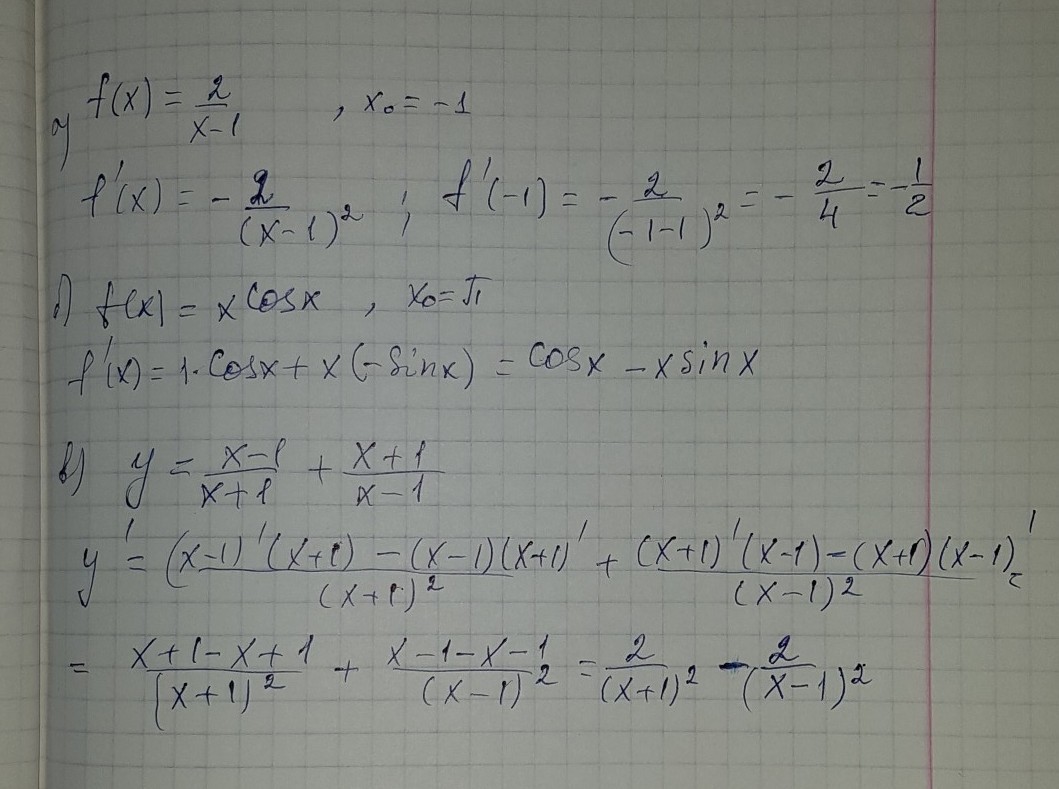 а) f(x) = 2/(x-1) , x₀ = -1
f'(x) = - 2/(x-1)² ; f'(-1) = - 2/(-1-1)² = - 2/4 = - 1/2
б) f(x) = x cosx , x₀ = π
f'(x) = 1·cosx + x(-sinx) = cosx - x sinx
в) y = (x-1)/(x+1) + (x+1)/(x-1)
y' = ((x-1)'(x+1) - (x-1)(x+1)')/(x+1)² + ((x+1)'(x-1) - (x+1)(x-1)')/(x-1)² =
= (x+1-x+1)/(x+1)² + (x-1-x-1)/(x-1)² = 2/(x+1)² - 2/(x-1)²